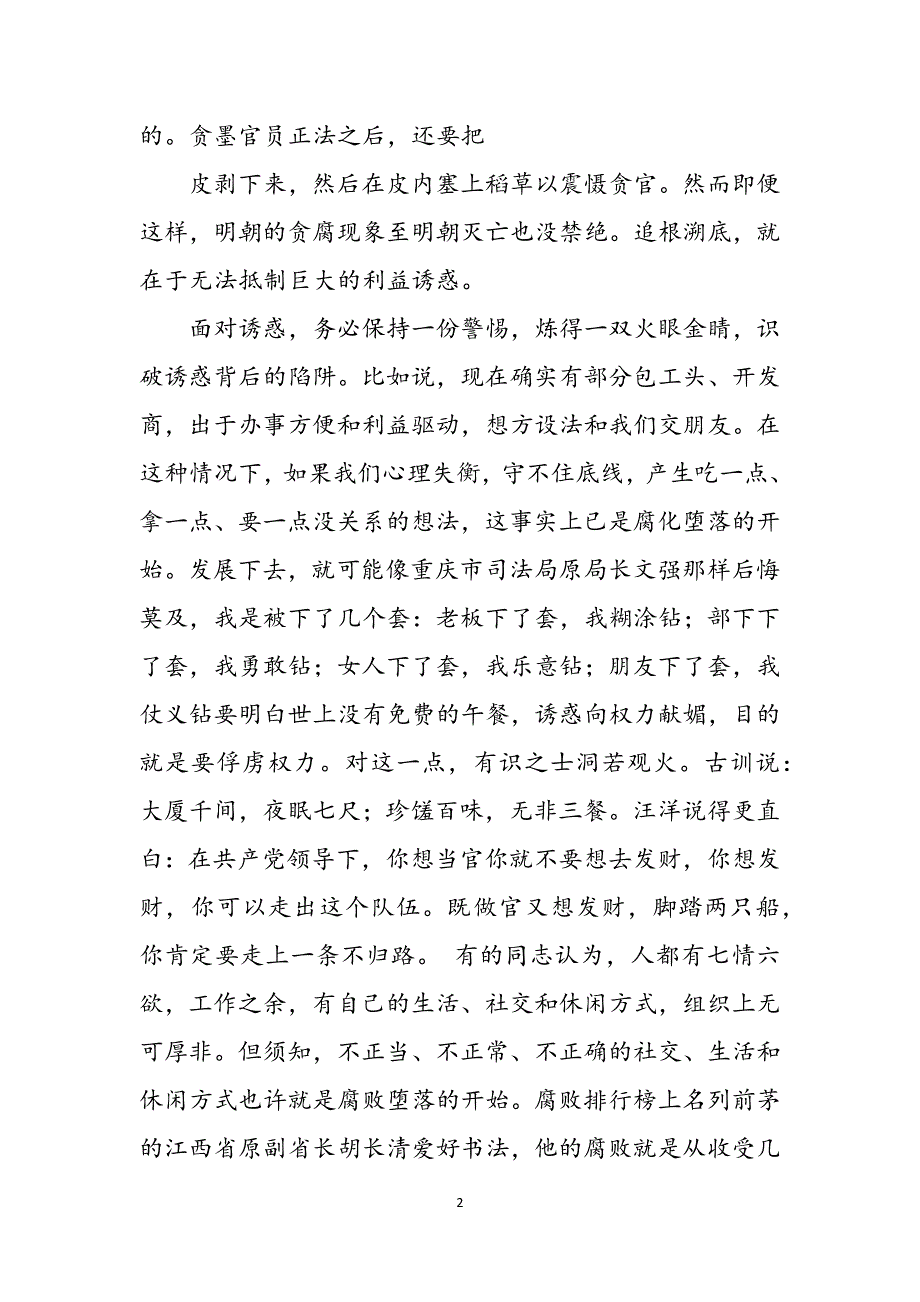 的。贪墨官员正法之后，还要把
皮剥下来，然后在皮内塞上稻草以震慑贪官。然而即便
这样，明朝的贪腐现象至明朝灭亡也没禁绝。追根溯底，就
在于无法抵制巨大的利益诱惑。
面对诱惑，务必保持一份警惕，炼得一双火眼金睛，识
破诱惑背后的陷阱。比如说，现在确实有部分包工头、开发
商，出于办事方便和利益驱动，想方设法和我们交朋友。在
这种情况下，如果我们心理失衡，守不住底线，产生吃一点、
拿一点、要一点没关系的想法，这事实上已是腐化堕落的开
始。发展下去，就可能像重庆市司法局原局长文强那样后悔
莫及，我是被下了几个套：老板下了套，我糊涂钻；部下下
了套，我勇敢钻；女人下了套，我乐意钻；朋友下了套，我
仗义钻要明白世上没有免费的午餐，诱惑向权力献媚，目的
就是要俘虏权力。对这一点，有识之士洞若观火。古训说：
大厦千间，夜眠七尺；珍馐百味，无非三餐。汪洋说得更直
白：在共产党领导下，你想当官你就不要想去发财，你想发
财，你可以走出这个队伍。既做官又想发财，脚踏两只船，
你肯定要走上一条不归路。 有的同志认为，人都有七情六
欲，工作之余，有自己的生活、社交和休闲方式，组织上无
可厚非。但须知，不正当、不正常、不正确的社交、生活和
休闲方式也许就是腐败堕落的开始。腐败排行榜上名列前茅
的江西省原副省长胡长清爱好书法，他的腐败就是从收受几
2